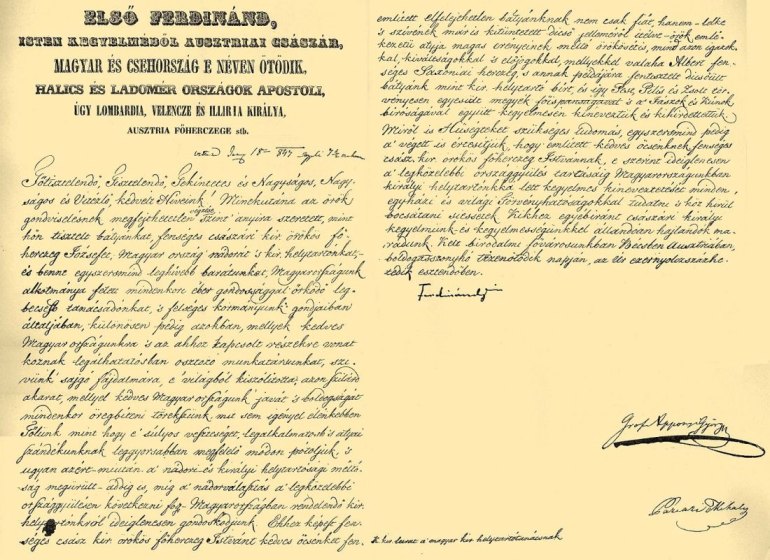 ELSŐ FERDINÁND,
ISTEN KEGYELMÉBŐL AUSZTRIAI CSÁSZÁR,
MAGYAR ÉS CSEHORSZÁG E NÉVEN ÖTÖDIK,
HALICS ÉS LADOMÉR ORSZÁGOK APOSTOLI,
ÚGY LOMBARDIA, VELENCZE ÉS ILLIRIA KIRÁLYA,
AUSZTRIA FŐHERCZEGE stb.
18 847
Főtisztelendő, Tisztelendő, Tekintetes és Nagyságos, Nagy,
ságos és Vitézlő, kedvelt Híveink! Minekutána az örök
gondviselésnek megfejthetetlen végzése szerint annyira szeretett, mint
hőn tisztelt bátyánkat, fenséges császári kir. örökös fő,
herczeg Józsefet, Magyar ország nádorát 's kir. helytartónkat,
és benne egyszersmind leghívebb barátunkat, Magyarországunk
alkotmánya felett mindenkor éber gondossággal őrködő leg,
becsesb tanácsadónkat, 's felséges kormányunk gondjaiban
általjában, különösen pedig azokban, mellyek kedves
Magyarországunkra 's az ahhoz kapcsolt részekre vonat
koznak legáthatósban osztozó munkatársunkat, szí,
vünk sajgó fájdalmára, e' világból kiszólította; azon szilárd
akarat, mellyel kedves Magyarországunk javát 's boldogságát
mindenkor öregbíteni törekszünk, mit sem igényel elenkebben
Tőlünk mint hogy e' súlyos veszteséget, legalkalmatosb 's atyai
szándékunknak leggyorsabban megfelelő módon pótoljuk, 's
ugyan azért miután a' nádori és királyi helytartósági méltó,
ság megürült addig is, míg a' nádorválasztás a' legközelebbi
országgyűlésen következni fog, Magyarországban rendelendő kir.
helytartónkról ideiglenesen gondoskodjunk. Ehhez képest fen,
séges császári kir. örökös főherczeg Istvánt kedves öcsénket fen,
említett elfelejthetlen bátyánknak nem csak fiát, hanem lelke
's szívének már is kitüntetett dicső jelleméről ítélve örök emlé,
kezetű atyja magas erényeinek méltó örökösét is, mind azon jogok,
kal, kiváltságokkal 's előjogokkal, mellyekkel valaha Albert fen,
séges Szászoniai herczeg, 's annak példájára fentisztelt dicsőült
bátyánk mint kir. helytartó bírt, és így Pest, Pilis és Zsolt tör,
vényesen egyesült megyék főispánságával 's a' Jászok és Kúnok
bíróságával együtt kegyelmesen kineveztük és kihirdettettük.
Miről is Hűségteket szükséges tudomás, egyszersmind pedig
a' végett is értesítjük, hogy említett kedves öcsénknek fenséges
császári kir. örökös főherczeg Istvánnak, e szerint ideiglenesen
a' legközelebbi országgyűlés tartásáig Magyarországunkban
királyi helytartónkká lett kegyelmes kineveztetését minden,
egyházi és világi Törvényhatóságokkal tudatni 's köz hírül
bocsátani siessetek. Kikhez egyébiránt császári királyi
kegyelmünk és kegyelmességünkkel állandóan hajlandók ma,
radunk. Kelt birodalmi fővárosunkban Bécsben Ausztriában,
boldogasszonyhó tizenötödik napján, az élő ezernyolczszázhe,
tedik esztendőben.
Ferdinánd
Gróf Apponyi György
Mihály
A' kir. levél a' magyar kir. helytartótanácsnak